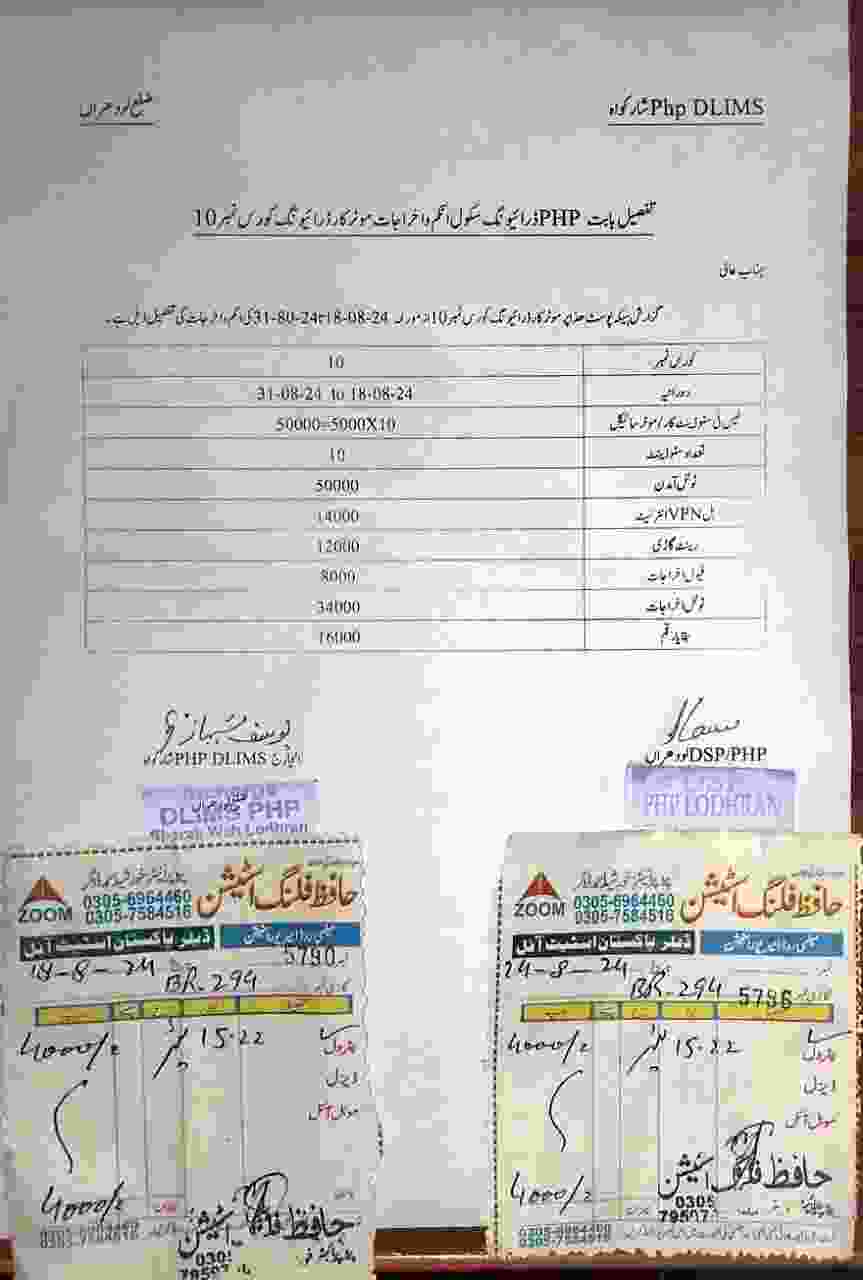 ضلع لودھراں
Php DLIMS شارکواہ
تفصیل بابت PHP ڈرائیونگ سکول انکم و اخراجات موٹر کار ڈرائیونگ کورس نمبر 10
جناب عالی
گزارش ہیکہ پوسٹ ھذا پر موٹر کار ڈرائیونگ کورس نمبر 10 از مورخہ 18-08-24 تا 31-80-24 کی انکم و اخراجات کی تفصیل ذیل ہے۔
کورس نمبر 10
دورانیہ 31-08-24 to 18-08-24
فیس فی سٹوڈینٹ کار/موٹر سائیکل 50000=5000X10
تعداد سٹوڈینٹ 10
ٹوٹل آمدن 50000
بل VPN انٹرنیٹ 14000
رینٹ گاڑی 12000
فیول اخراجات 8000
ٹوٹل اخراجات 34000
بقایا رقم 16000
یوسف شہباز
انچارج PHP DLIMS شارکواہ
DSP/PHP لودھراں
DLIMS PHP
Sharah Wah Lodhran
PHP LODHRAN
حافظ فلنگ اسٹیشن
ZOOM
0305-6964460
0305-7584516
ڈیلر پاکستان اسٹیٹ آئل
5790
18-8-24
BR-294
پٹرول 15.22 لیٹر 4000/=
ڈیزل
موبل آئل
4000/=
حافظ فلنگ اسٹیشن
حافظ فلنگ اسٹیشن
ZOOM
0305-6964460
0305-7584516
ڈیلر پاکستان اسٹیٹ آئل
24-8-24
BR-294
5796
پٹرول 15.22 لیٹر 4000/=
ڈیزل
موبل آئل
4000/=
حافظ فلنگ اسٹیشن
0305